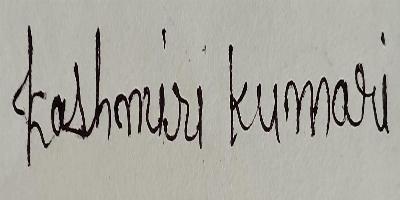 Kashmiri kumari